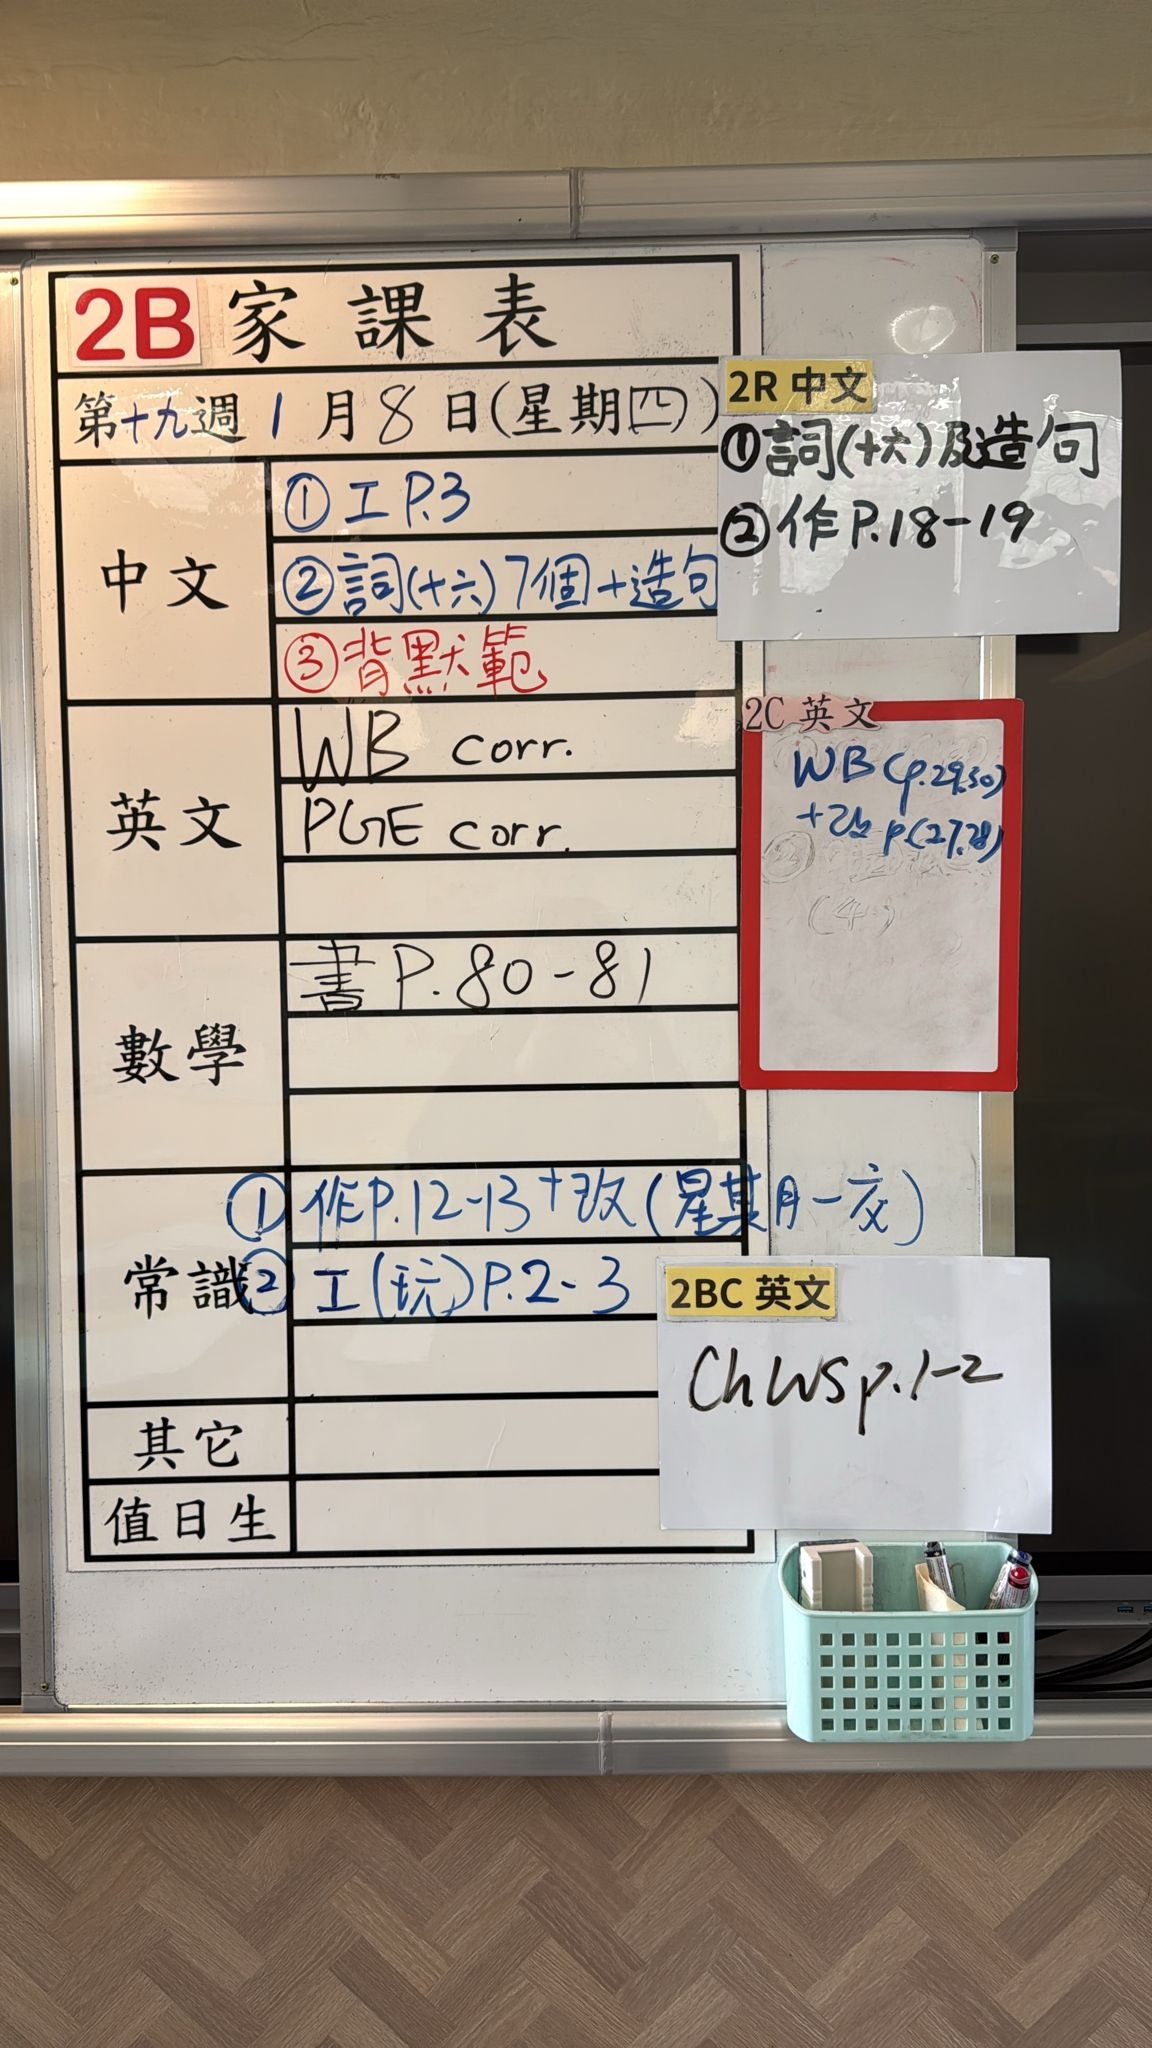 2B 家課表
第十九週 1月8日(星期四)
中文
①工P.3
②詞(十六)7個+造句
③背默範
英文
WB corr.
PGE corr.
數學
書P.80-81
常識
①作P.12-13+改(星期一交)
②工(玩)P.2-3
其它
值日生
2R 中文
①詞(十六)及造句
②作P.18-19
2C 英文
WB (p.29,30)
+改 p.(27,28)
2BC 英文
Ch WS p.1-2